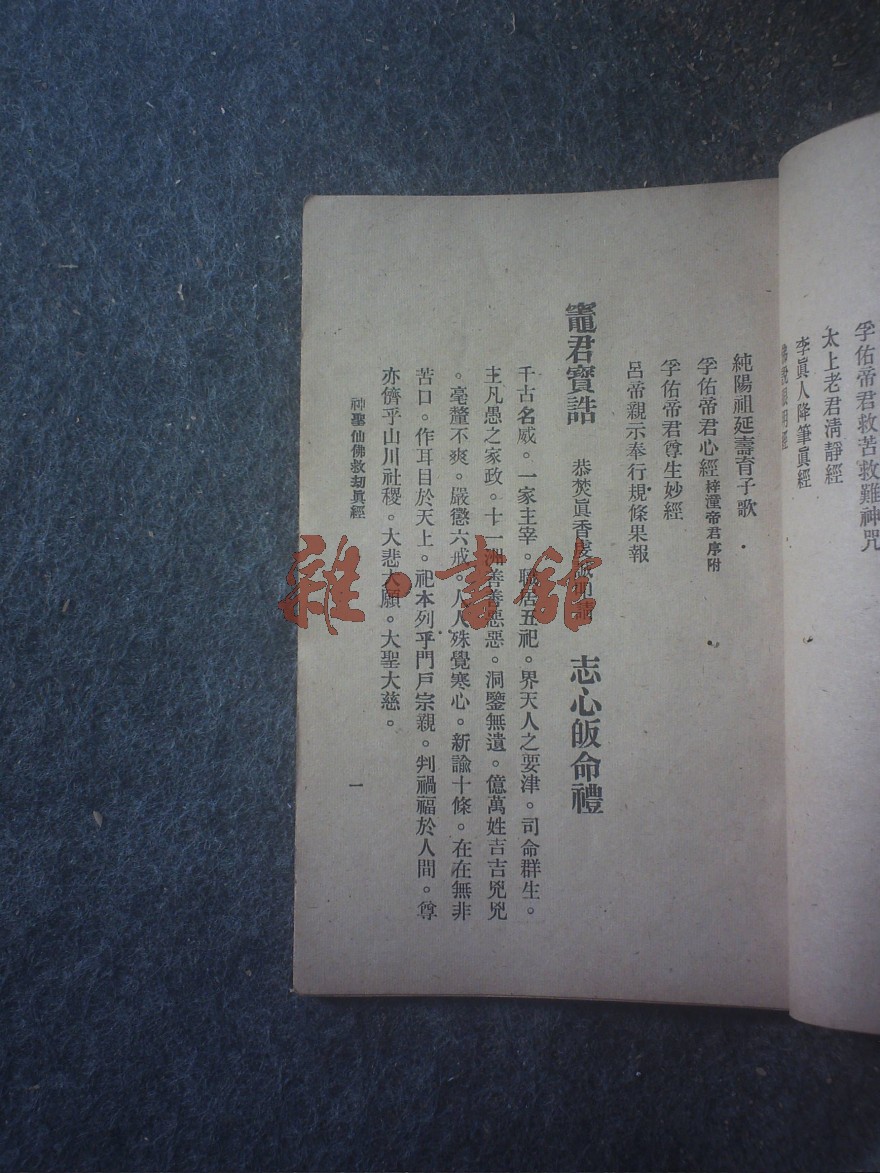 孚佑帝君救苦救難神咒
太上老君清靜經
李眞人降筆眞經
純陽祖延壽育子歌
孚佑帝君心經 梓潼帝君序附
孚佑帝君尊生妙經
呂帝親示奉行規條果報
竈君寳誥 恭焚眞香虔誠 志心皈命禮
千古名威。一家主宰。職居五祀。界天人之要津。司命群生。
主凡愚之家政。十一洲善善惡惡。洞鑒無遺。億萬姓吉吉兇兇
。毫釐不爽。嚴懲六戒。人人殊覺寒心。新諭十條。在在無非
苦口。作耳目於天上。祀本列乎門戶宗親。判禍福於人間。尊
亦儕乎山川社稷。大悲大願。大聖大慈。
神聖仙佛救劫眞經
一
雜·書館